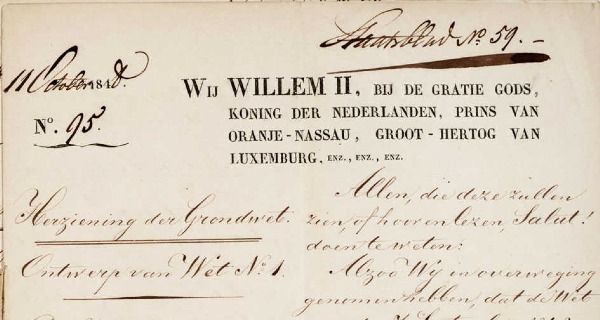 Staatsblad No. 59. -
11 October 1848.
No. 95.
WIJ WILLEM II, BIJ DE GRATIE GODS,
KONING DER NEDERLANDEN, PRINS VAN
ORANJE-NASSAU, GROOT-HERTOG VAN
LUXEMBURG, ENZ., ENZ., ENZ.
Herziening der Grondwet.
Ontwerp van Wet No. 1.
Allen, die deze zullen
zien, of hooren lezen, Salut!
doen te weten:
Alzoo Wij in overweging
genomen hebben, dat de Wet